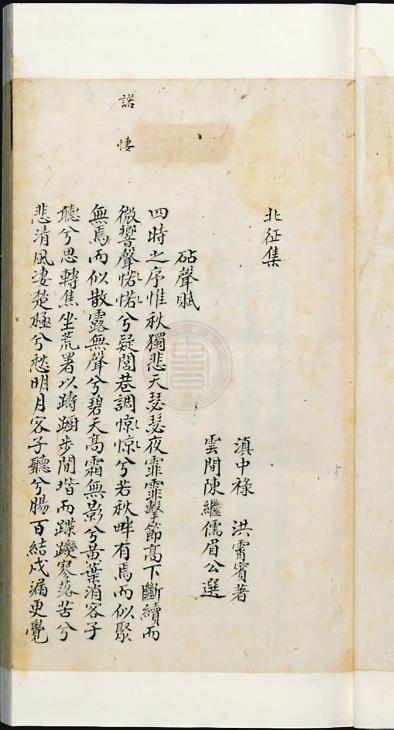 北征集
滇中祿　洪霄賓著
雲間陳繼儒眉公選
砧聲賦
四時之序惟秋獨悲天瑟瑟夜霏霏擊節高下斷續而
微響聲惜惜兮疑閭巷調惊惊兮若秋畔有焉而似聚
無焉而似散露無聲兮碧天高霜無影兮黃葉消客子
聽兮思轉焦坐荒署以躊蹰步閒堦而蹀躞寥落苦兮
悲清風淒楚極兮愁明月客子聽兮腸百結戍漏更覺
諾悽